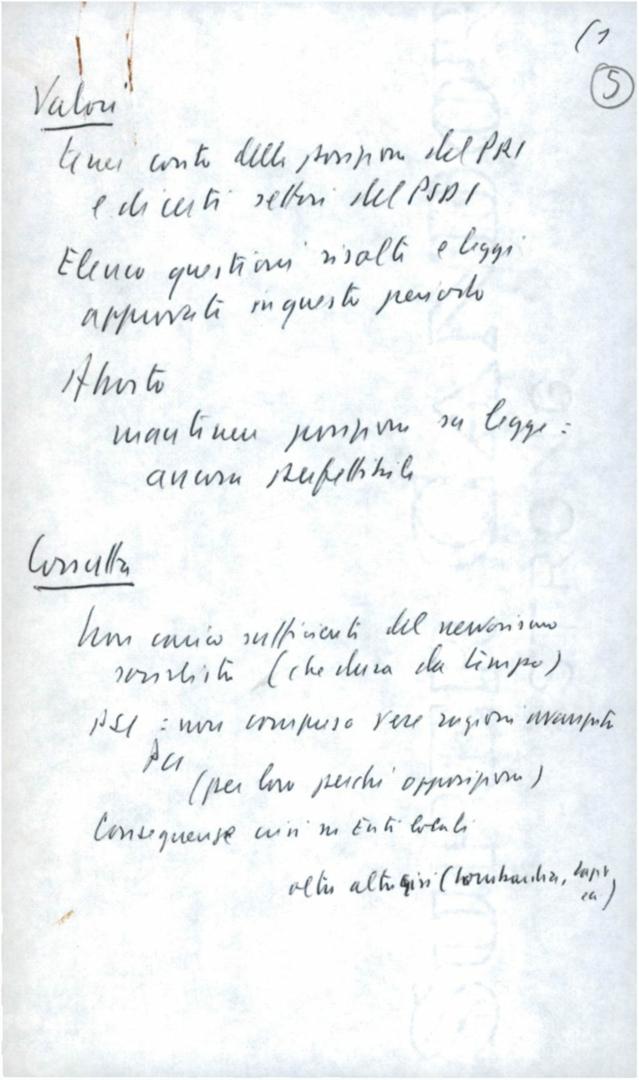 (1
5
Valori
tener conto della posizione del PRI
e di certi settori del PSDI
Elenco questioni risolte e leggi
approvate in questo periodo
Aborto
mantenere posizione su legge:
ancora perfettibile
Cossutta
Non unico sufficienti del nervosismo
socialista (che dura da tempo)
PSI : non compreso vere ragioni avanzata
PCI
(per loro perché opposizione)
Conseguenze crisi su Enti locali
oltre altre crisi (Lombardia,